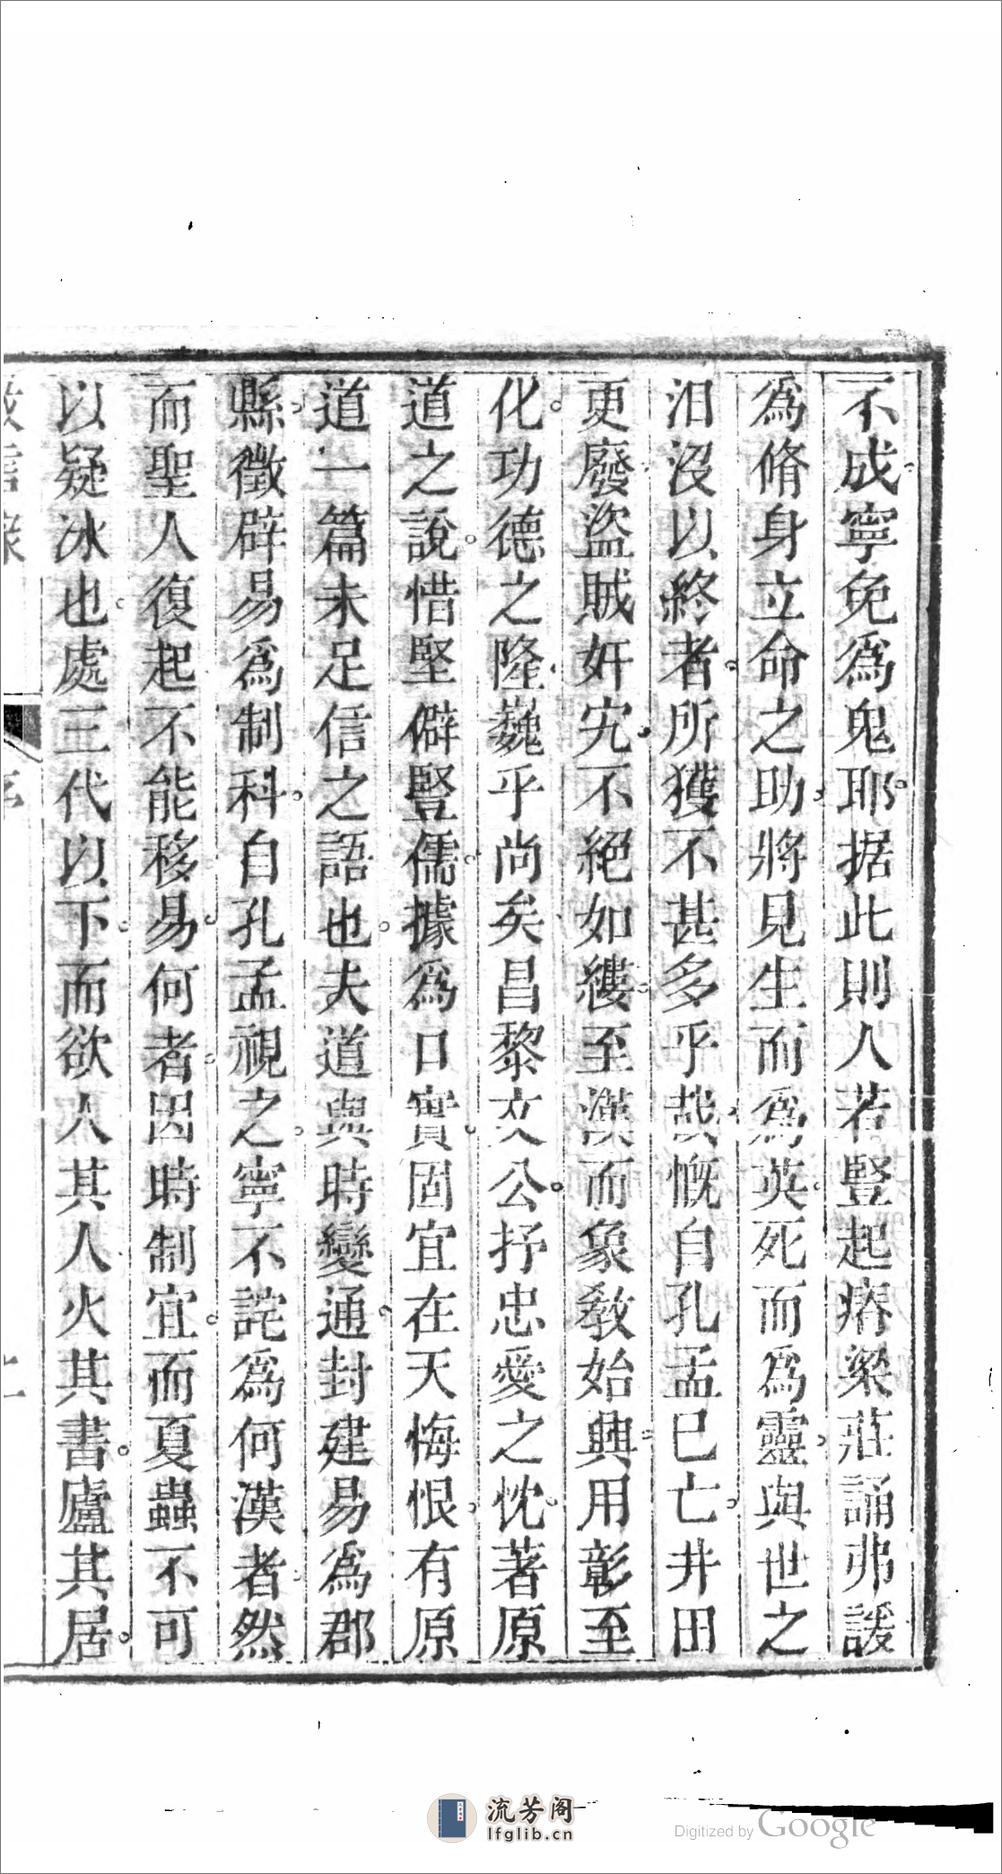 不成寧免為鬼耶据此則人若豎起瘠梁莊誦弗諼
為脩身立命之助將見生而為英死而為靈與世之
汨没以終者所獲不甚多乎哉慨自孔孟已亡井田
更廢盜賊奸宄不絕如縷至漢而象教始興用彰至
化功德之隆巍乎尚矣昌黎文公抒忠愛之忱著原
道之說惜堅僻豎儒據為口實固宜在天悔恨有原
道一篇未足信之語也夫道與時變通封建易為郡
縣徵辟易為制科自孔孟視之寧不詫為何漢者然
而聖人復起不能移易何者因時制宜而夏蟲不可
以疑冰也處三代以下而欲人其人火其書廬其居
流芳阁
lfglib.cn
Digitized by Google